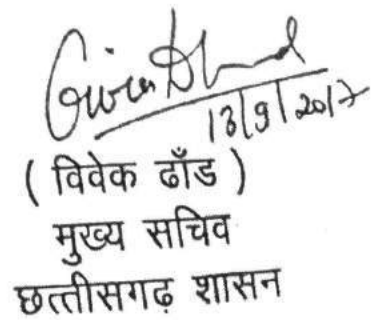 13/9/2017
( विवेक ढाँड )
मुख्य सचिव
छत्तीसगढ़ शासन